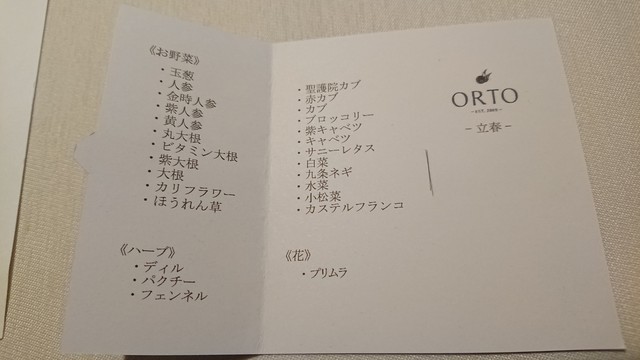 《お野菜》
・玉葱
・人参
・金時人参
・紫人参
・黄人参
・丸大根
・ビタミン大根
・紫大根
・大根
・カリフラワー
・ほうれん草
《ハーブ》
・ディル
・パクチー
・フェンネル
・聖護院カブ
・赤カブ
・カブ
・ブロッコリー
・紫キャベツ
・キャベツ
・サニーレタス
・白菜
・九条ネギ
・水菜
・小松菜
・カステルフランコ
《花》
・プリムラ
ORTO
-立春-